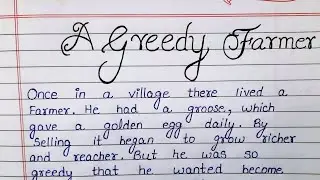 A Greedy Farmer
Once in a village there lived a
Farmer. He had a groose, which
gave a golden egg daily. By
Selling it began to grow richer
and reacher. But he was so
greedy that he wanted become